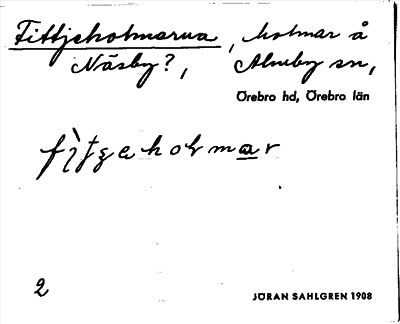 Fittjeholmarna, holmar å
Näsby?, Almby sn,
Örebro hd, Örebro län
fìtɟeholmar
2
JÖRAN SAHLGREN 1908